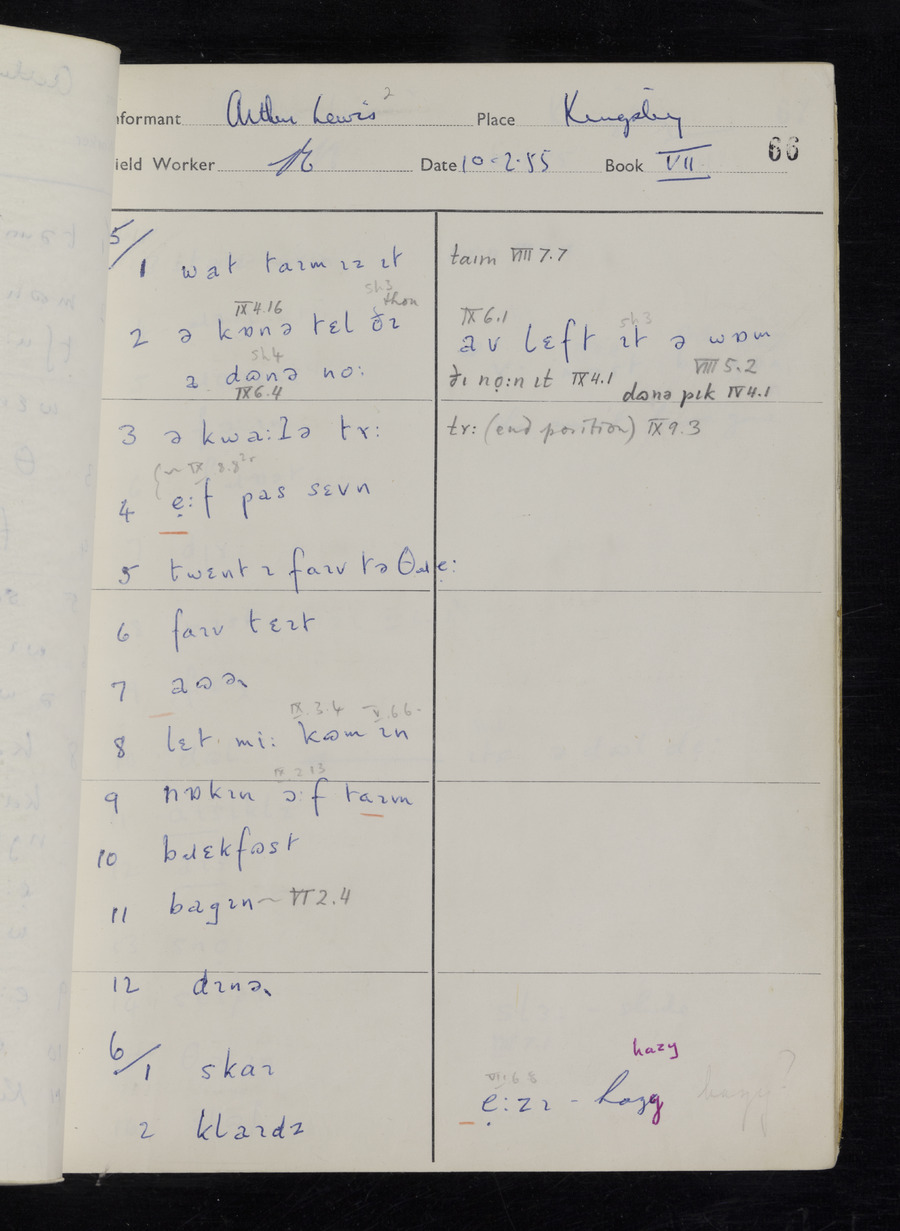 Informant Arthur Lewis 2 Place Kingsley
Field Worker Date 10-2-55 Book VII 66
5/
1 wat taɪm ɪz ɪt
taɪm VIII 7.7
sh3
IX 4.16 thou
2 ə kɒnə tɛl ðɪ
sh4
a dɷnə no:
IX 6.4
IX 6.1
sh3
av lɛft ɪt ə wɒm
VIII 5.2
ðɪ nọ:n ɪt IX 4.1
dɷnə pɪk IV 4.1
3 ə kwa:ɹə tɤ:
tɤ: (end position) IX 9.3
~ IX 8.8
4 ẹ:f pas sɛvn
5 twɛntɪ faɪv tə θɹẹ:
6 faɪv tɛɪt
7 aɷə
IX.3.4 V.6.6
8 lɛt mi: kɷm ɪn
IX 2 13
9 nɒkɪn ə:f taɪm
10 bɹɛkfəst
11 bagɪn ~ VI 2.4
12 dɪnə
6/
1 skaɪ
hazy
VII 6 8
ẹ:zɪ - hazy hazy?
2 klaɪdz